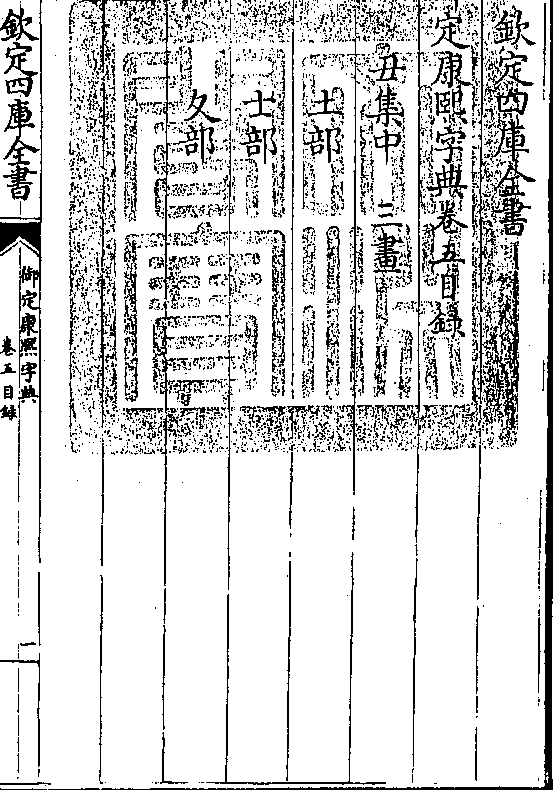 欽定四庫全書
定康熙字典卷五目録
丑集中 三畫
土部
士部
夂部
欽定四庫全書
御定康熙字典
卷五目録
一